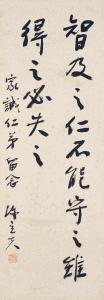 智及之仁不能守之雖
得之必失之
家誠仁弟留念
陳立夫